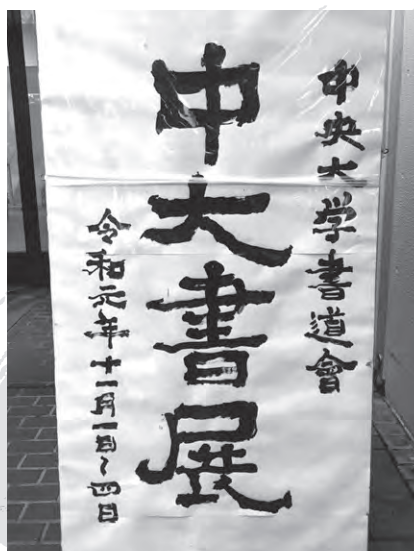 中央大学書道會
中大書展
令和元年十一月一日〜四日